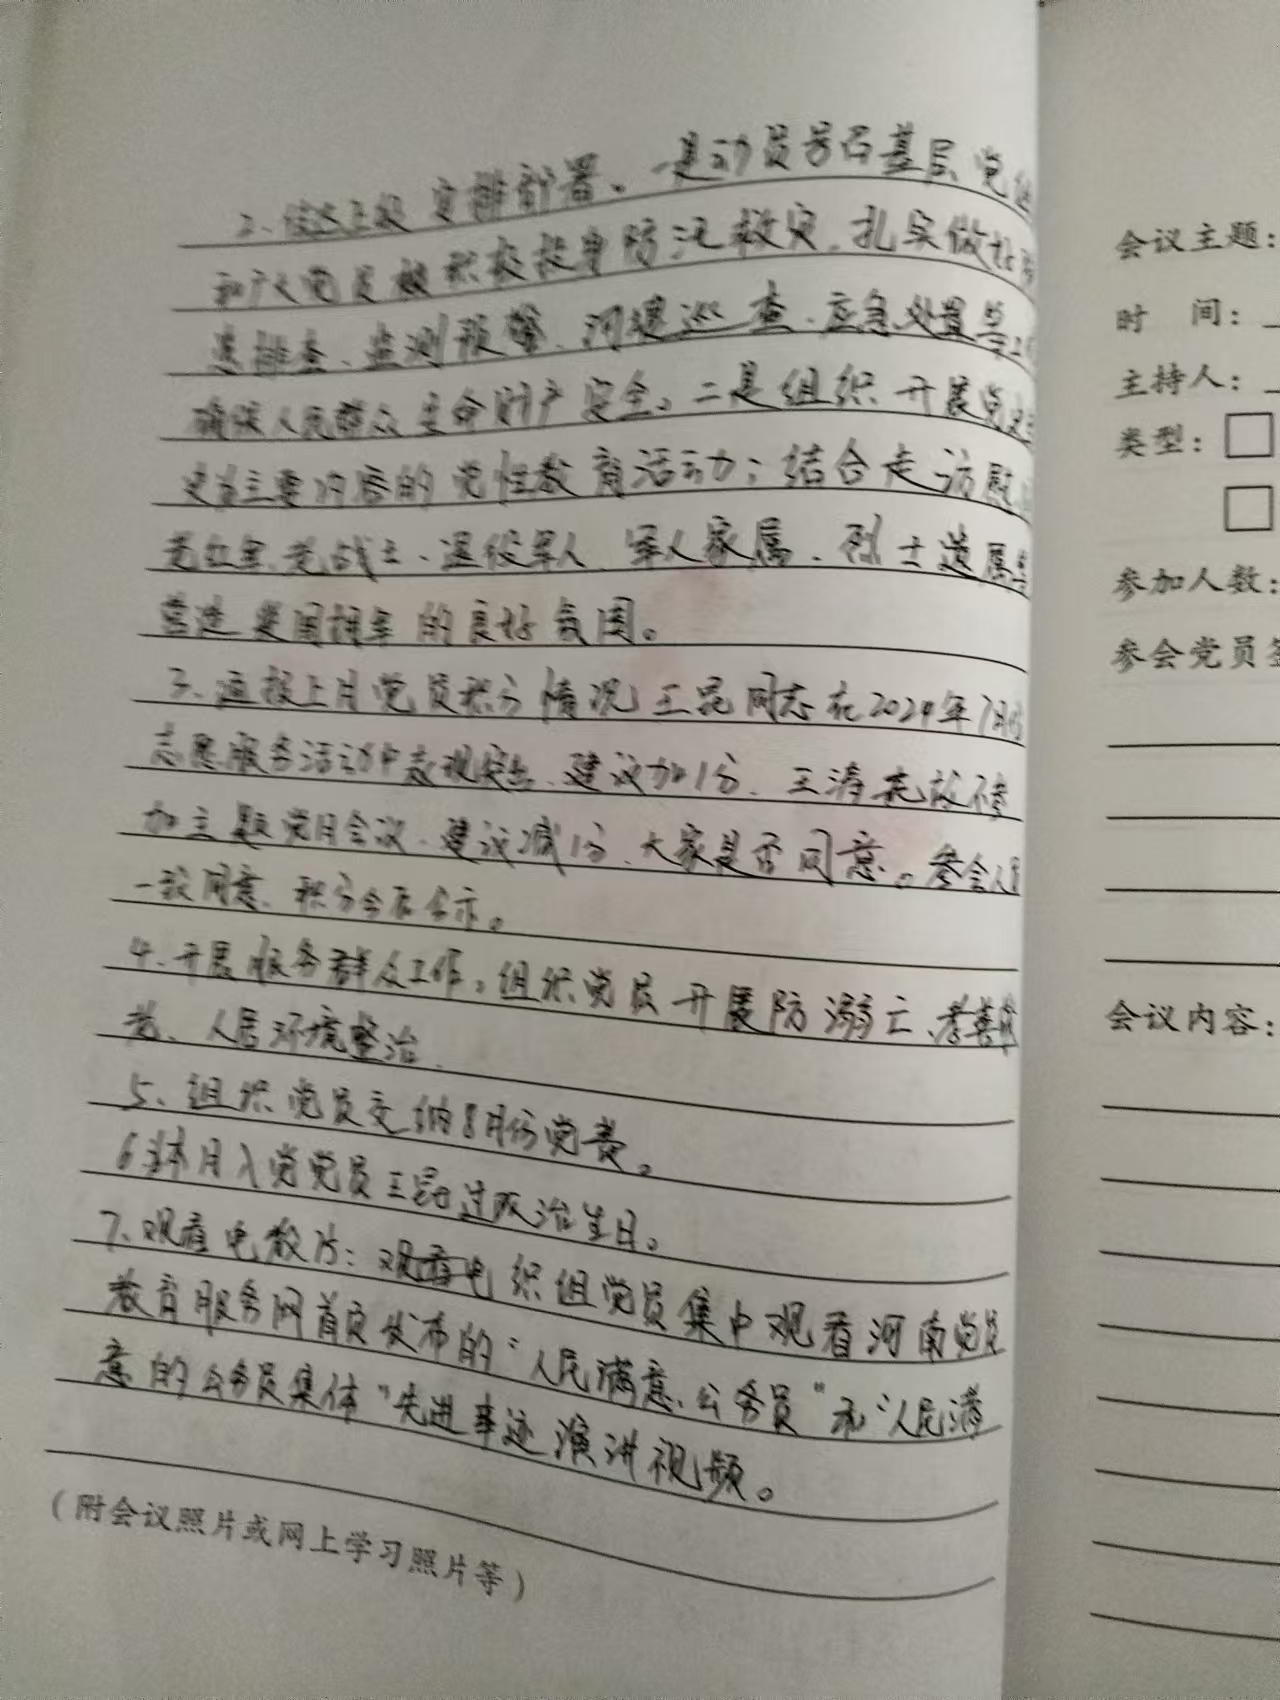 2、传达上级安排部署。一是动员号召基层党组
和广大党员积极投身防汛救灾,扎实做好隐
患排查、监测预警、河堤巡查、应急处置等工作
确保人民群众生命财产安全。二是组织开展党史
史为主要内容的党性教育活动;结合走访慰
老红军、老战士、退役军人、军人家属、烈士遗属等
营造爱国拥军的良好氛围。
3、通报上月党员积分情况 王昆同志在2024年7月份
志愿服务活动中表现突出,建议加1分,王涛无故不参
加主题党日会议,建议减1分,大家是否同意。参会人员
一致同意,积分会后公示。
4、开展服务群众工作。组织党员开展防溺亡、孝善敬
老、人居环境整治
5、组织党员交纳8月份党费。
6、本月入党党员王昆过政治生日。
7、观看电教片:观看电织组党员集中观看河南党员
教育服务网首页发布的“人民满意、公务员”和“人民满
意的公务员集体”先进事迹演讲视频。
(附会议照片或网上学习照片等)
会议主题:
时 间:
主持人:
类型:
参加人数:
参会党员签
会议内容: